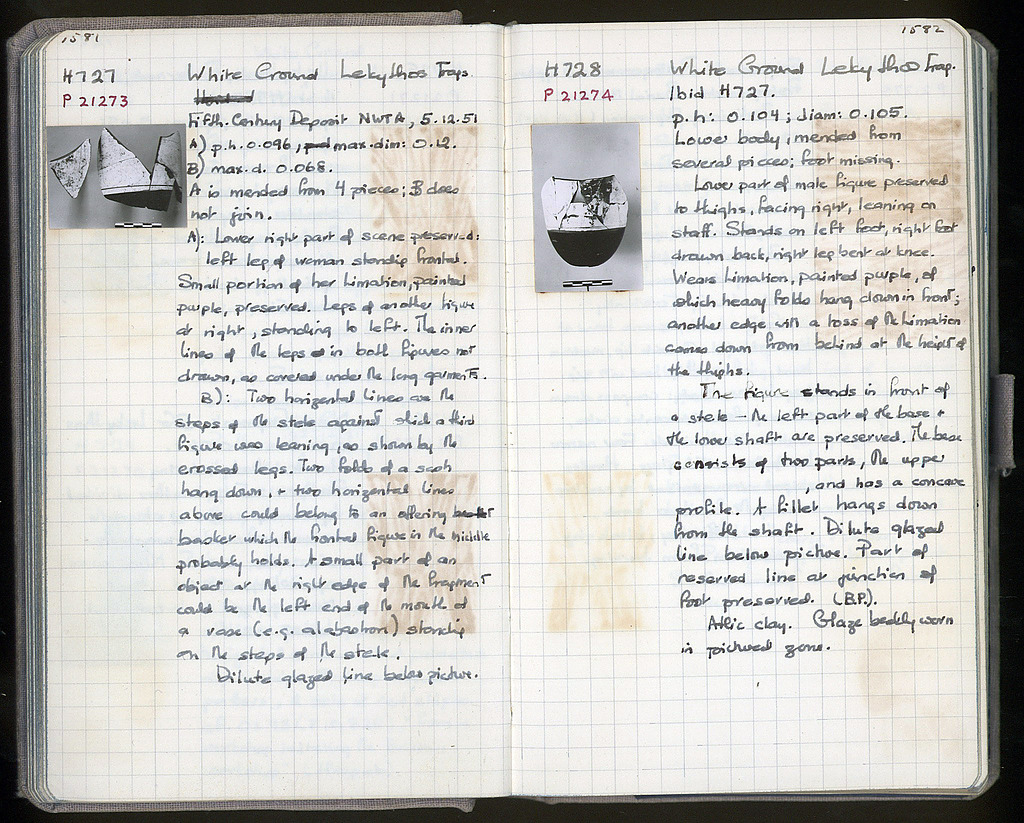 1581
H727
P 21273
White Ground Lekythos Frags.
Fifth Century Deposit NWTA, 5.12.51
A) p.h. 0.096, max. dim: 0.12.
B) max. d. 0.068.
A is mended from 4 pieces; B does
not join.
A): Lower right part of scene preserved:
left leg of woman standing frontal.
Small portion of her himation, painted
purple, preserved. Legs of another figure
at right, standing to left. The inner
lines of the legs in both figures not
drawn, as covered under the long garments.
B): Two horizontal lines are the
steps of the stele against which a third
figure was leaning, as shown by the
crossed legs. Two folds of a sash
hang down, + two horizontal lines
above could belong to an offering
basket which the frontal figure in the middle
probably holds. A small part of an
object at the right edge of the fragment
could be the left end of the mouth of
a vase (e.g. alabastron) standing
on the steps of the stele.
Dilute glazed line below picture.
1582
H728
P 21274
White Ground Lekythos Frag.
Ibid H727.
p.h: 0.104; diam: 0.105.
Lower body, mended from
several pieces; foot missing.
Lower part of male figure preserved
to thighs, facing right, leaning on
staff. Stands on left foot, right foot
drawn back, right leg bent at knee.
Wears himation, painted purple, of
which heavy folds hang down in front;
another edge with a toss of the himation
comes down from behind at the height of
the thighs.
The figure stands in front of
a stele - the left part of the base +
the lower shaft are preserved. The base
consists of two parts, the upper
, and has a concave
profile. A fillet hangs down
from the shaft. Dilute glazed
line below picture. Part of
reserved line at junction of
foot preserved. (B.P.).
Attic clay. Glaze badly worn
in pictured zone.